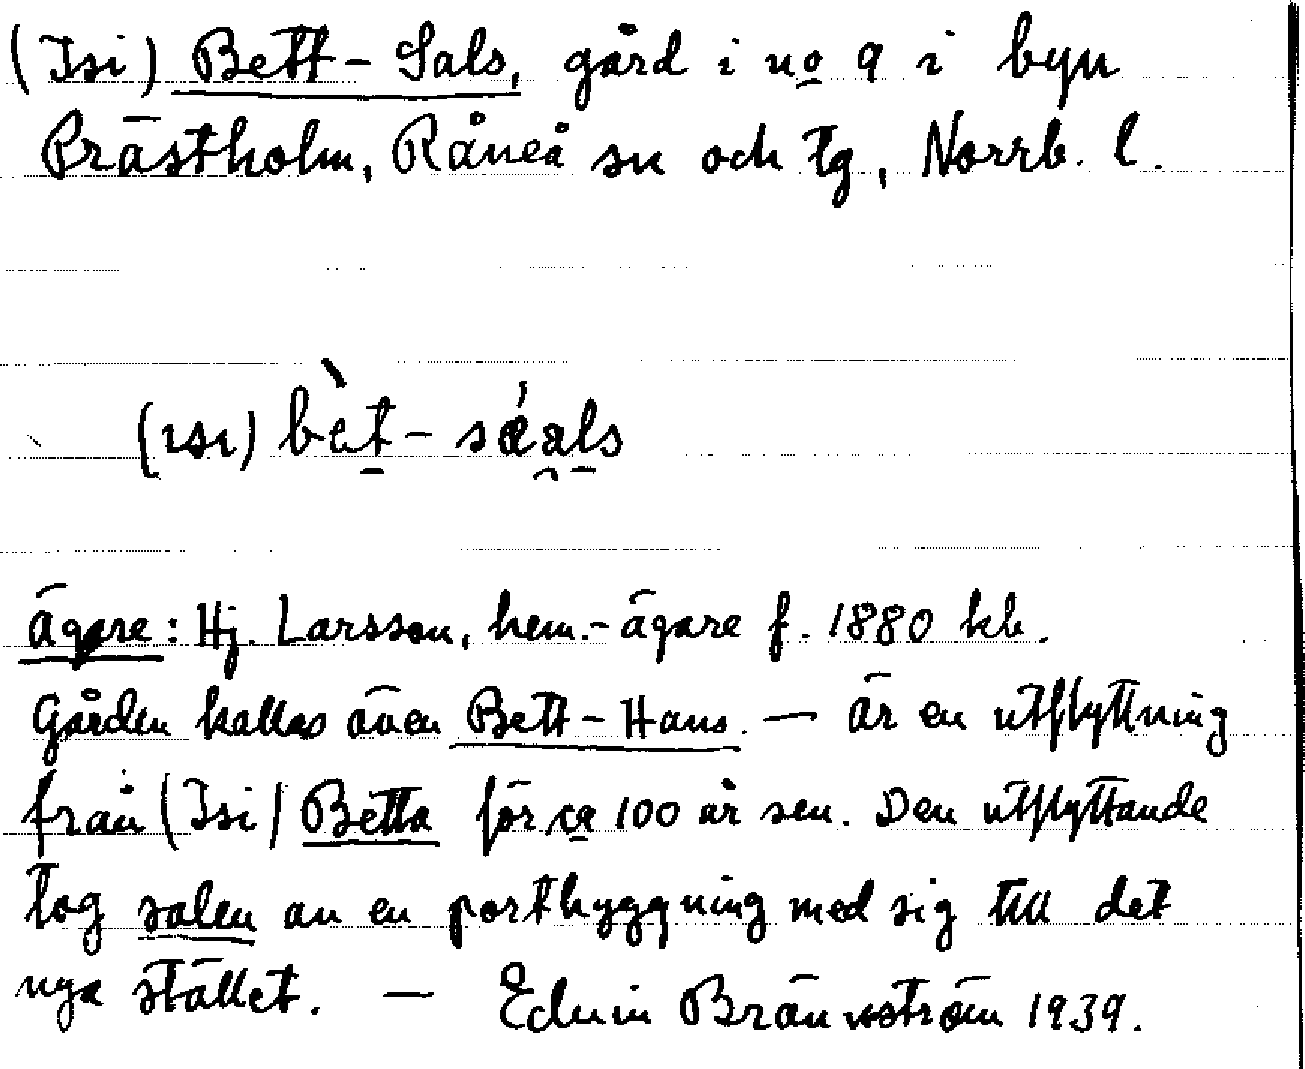 (Isi) Bett-Sals, gård i no 9 i byn
Prästholm, Råneå sn och tg, Norrb. l.
(ısı) bὲt-sǽals
ägare: Hj. Larsson, hem.-ägare f. 1880 kb.
Gården kallas även Bett-Hans. — är en utflyttning
från (Isi) Betta för ca 100 år sen. Den utflyttande
tog salen av en portbyggning med sig till det
nya stället. — Edvin Brännström 1939.